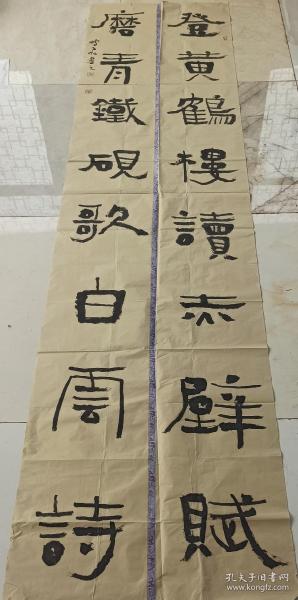 登黄鶴樓讀赤壁賦
磨青鐵硯歌白雲詩
孔夫子旧书网